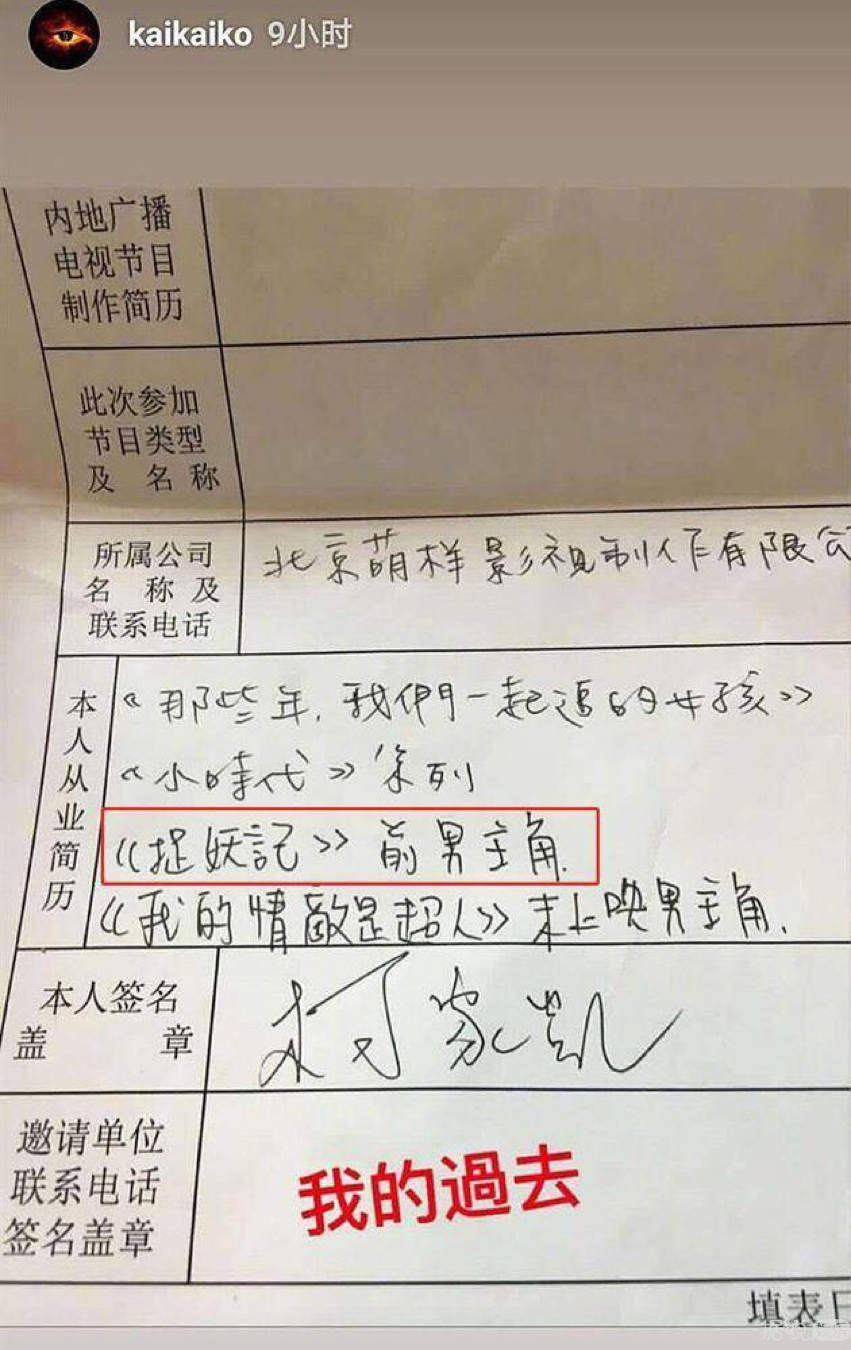 kaikaiko 9小时
内地广播
电视节目
制作简历
此次参加
节目类型
及 名 称
所属公司
名 称 及
联系电话
北京萌样影视制作有限公
本人从业简历
《那些年，我們一起追的女孩》
《小時代》系列
《捉妖記》前男主角.
《我的情敵是超人》未上映男主角.
本人签名
盖 章
柯家凯
邀请单位
联系电话
签名盖章
我的過去
填表日